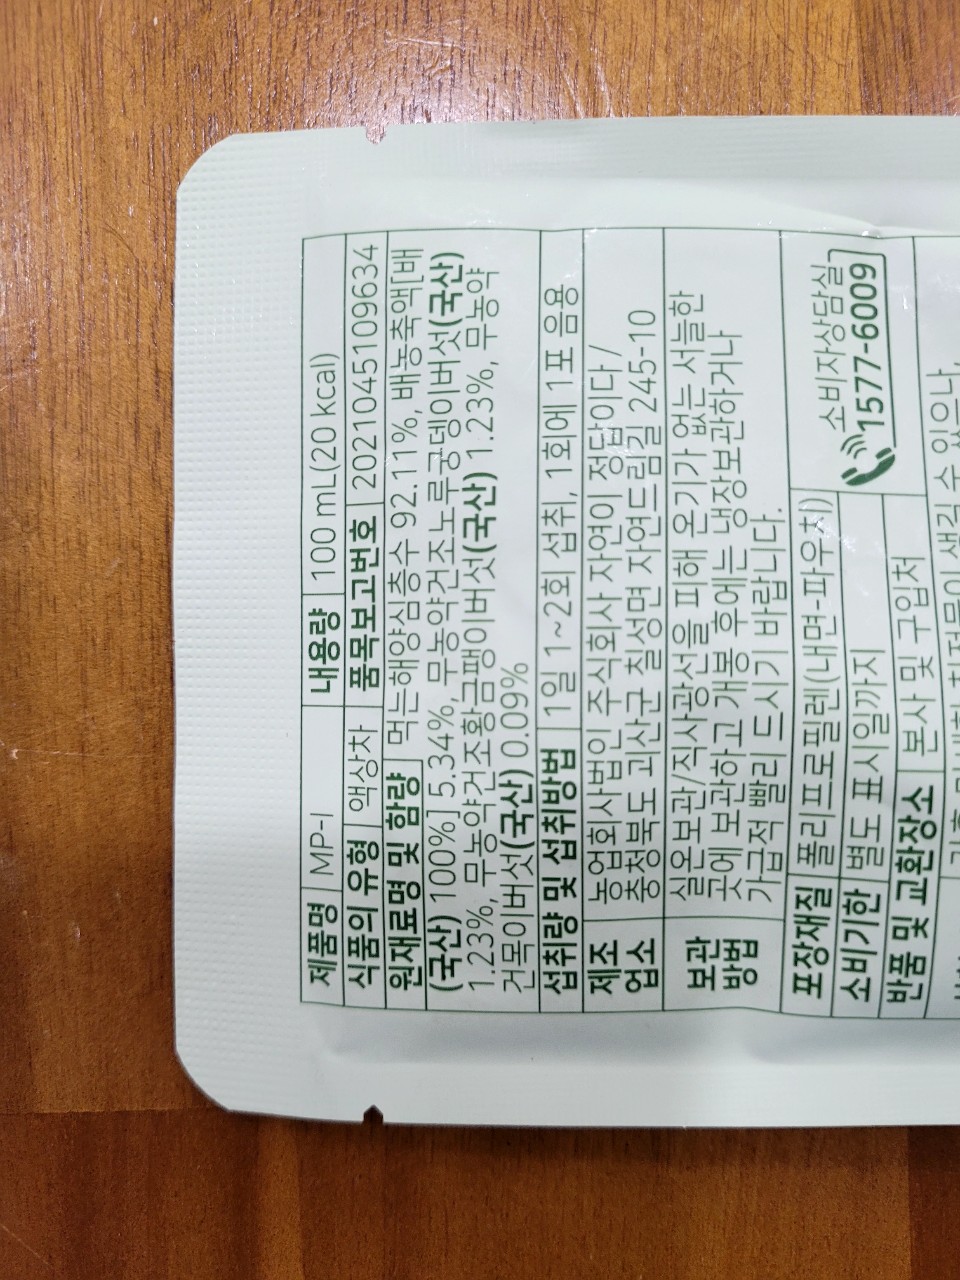 제품명 MP-I 내용량 100 mL(20 kcal)
식품의 유형 액상차 품목보고번호 2021045109634
원재료명 및 함량 먹는해양심층수 92.11%, 배농축액[배
(국산) 100%] 5.34%, 무농약건조노루궁뎅이버섯(국산)
1.23%, 무농약건조황금팽이버섯(국산) 1.23%, 무농약
건목이버섯(국산) 0.09%
섭취량 및 섭취방법 1일 1~2회 섭취, 1회에 1포 음용
제조업소 농업회사법인 주식회사 자연이 정답이다 /
충청북도 괴산군 칠성면 자연드림길 245-10
보관방법 실온보관/직사광선을 피해 온기가 없는 서늘한
곳에 보관하고 개봉 후에는 냉장보관하거나
가급적 빨리 드시기 바랍니다.
포장재질 폴리프로필렌(내면-파우치)
소비기한 별도 표시일까지
반품 및 교환장소 본사 및 구입처
소비자상담실
1577-6009
생길 수 있으나,